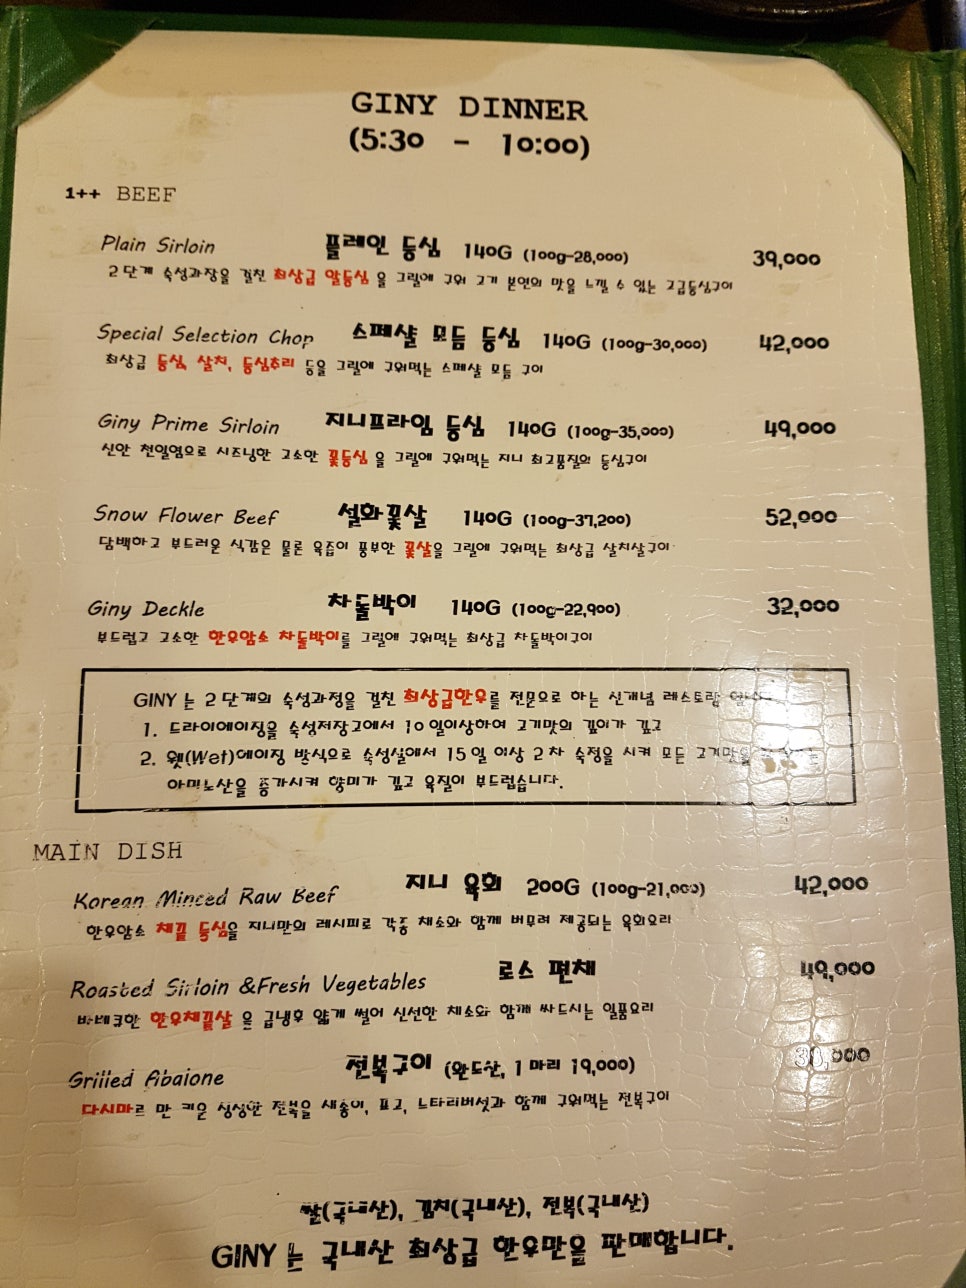 GINY DINNER
(5:30 - 10:00)
1++ BEEF
Plain Sirloin 플레인 등심 140G (100g-28,000) 39,000
2단계 숙성과장을 걸친 최상급 알등심 을 그릴에 구워 고기 본연의 맛을 느낄 수 있는 고급등심구이
Special Selection Chop 스페샬 모듬 등심 140G (100g-30,000) 42,000
최상급 등심, 살치, 등심추리 등을 그릴에 구워먹는 스페샬 모듬 구이
Giny Prime Sirloin 지니프라임 등심 140G (100g-35,000) 49,000
신안 천일염으로 시즈닝한 고소한 꽃등심 을 그릴에 구워먹는 지니 최고품질의 등심구이
Snow Flower Beef 설화꽃살 140G (100g-37,200) 52,000
담백하고 부드러운 식감은 물론 육즙이 풍부한 꽃살을 그릴에 구워먹는 최상급 살치살구이
Giny Deckle 차돌박이 140G (100g-22,900) 32,000
부드럽고 고소한 한우암소 차돌박이를 그릴에 구워먹는 최상급 차돌박이구이
GINY 는 2단계의 숙성과정을 걸친 최상급한우를 전문으로 하는 신개념 레스토랑
1. 드라이에이징을 숙성저장고에서 10일이상하여 고기맛의 깊이가 깊고
2. 웻(Wet)에이징 방식으로 숙성실에서 15일 이상 2차 숙정을 시켜 모든 고기맛을
아미노산을 증가시켜 향미가 깊고 육질이 부드럽습니다.
MAIN DISH
Korean Minced Raw Beef 지니 육회 200G (100g-21,000) 42,000
한우암소 채끝 등심을 지니만의 레시피로 각종 채소와 함께 버무려 제공되는 육회요리
Roasted Sirloin &Fresh Vegetables 로스 편채 49,000
바베큐한 한우채끝살 을 급냉후 얇게 썰어 신선한 채소와 함께 싸드시는 일품요리
Grilled Abalone 전복구이 (완도산, 1 마리 19,000) 38,000
다시마로 만 키운 싱싱한 전복을 새송이, 표고, 느타리버섯과 함께 구워먹는 전복구이
쌀(국내산), 김치(국내산), 전복(국내산)
GINY 는 국내산 최상급 한우만을 판매합니다.